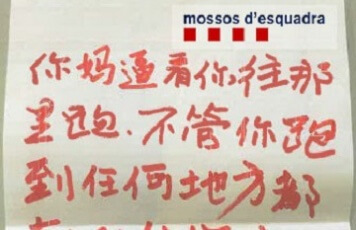 mossos d'esquadra
你妈逼看你往那
里跑、不管你跑
到任何地方都